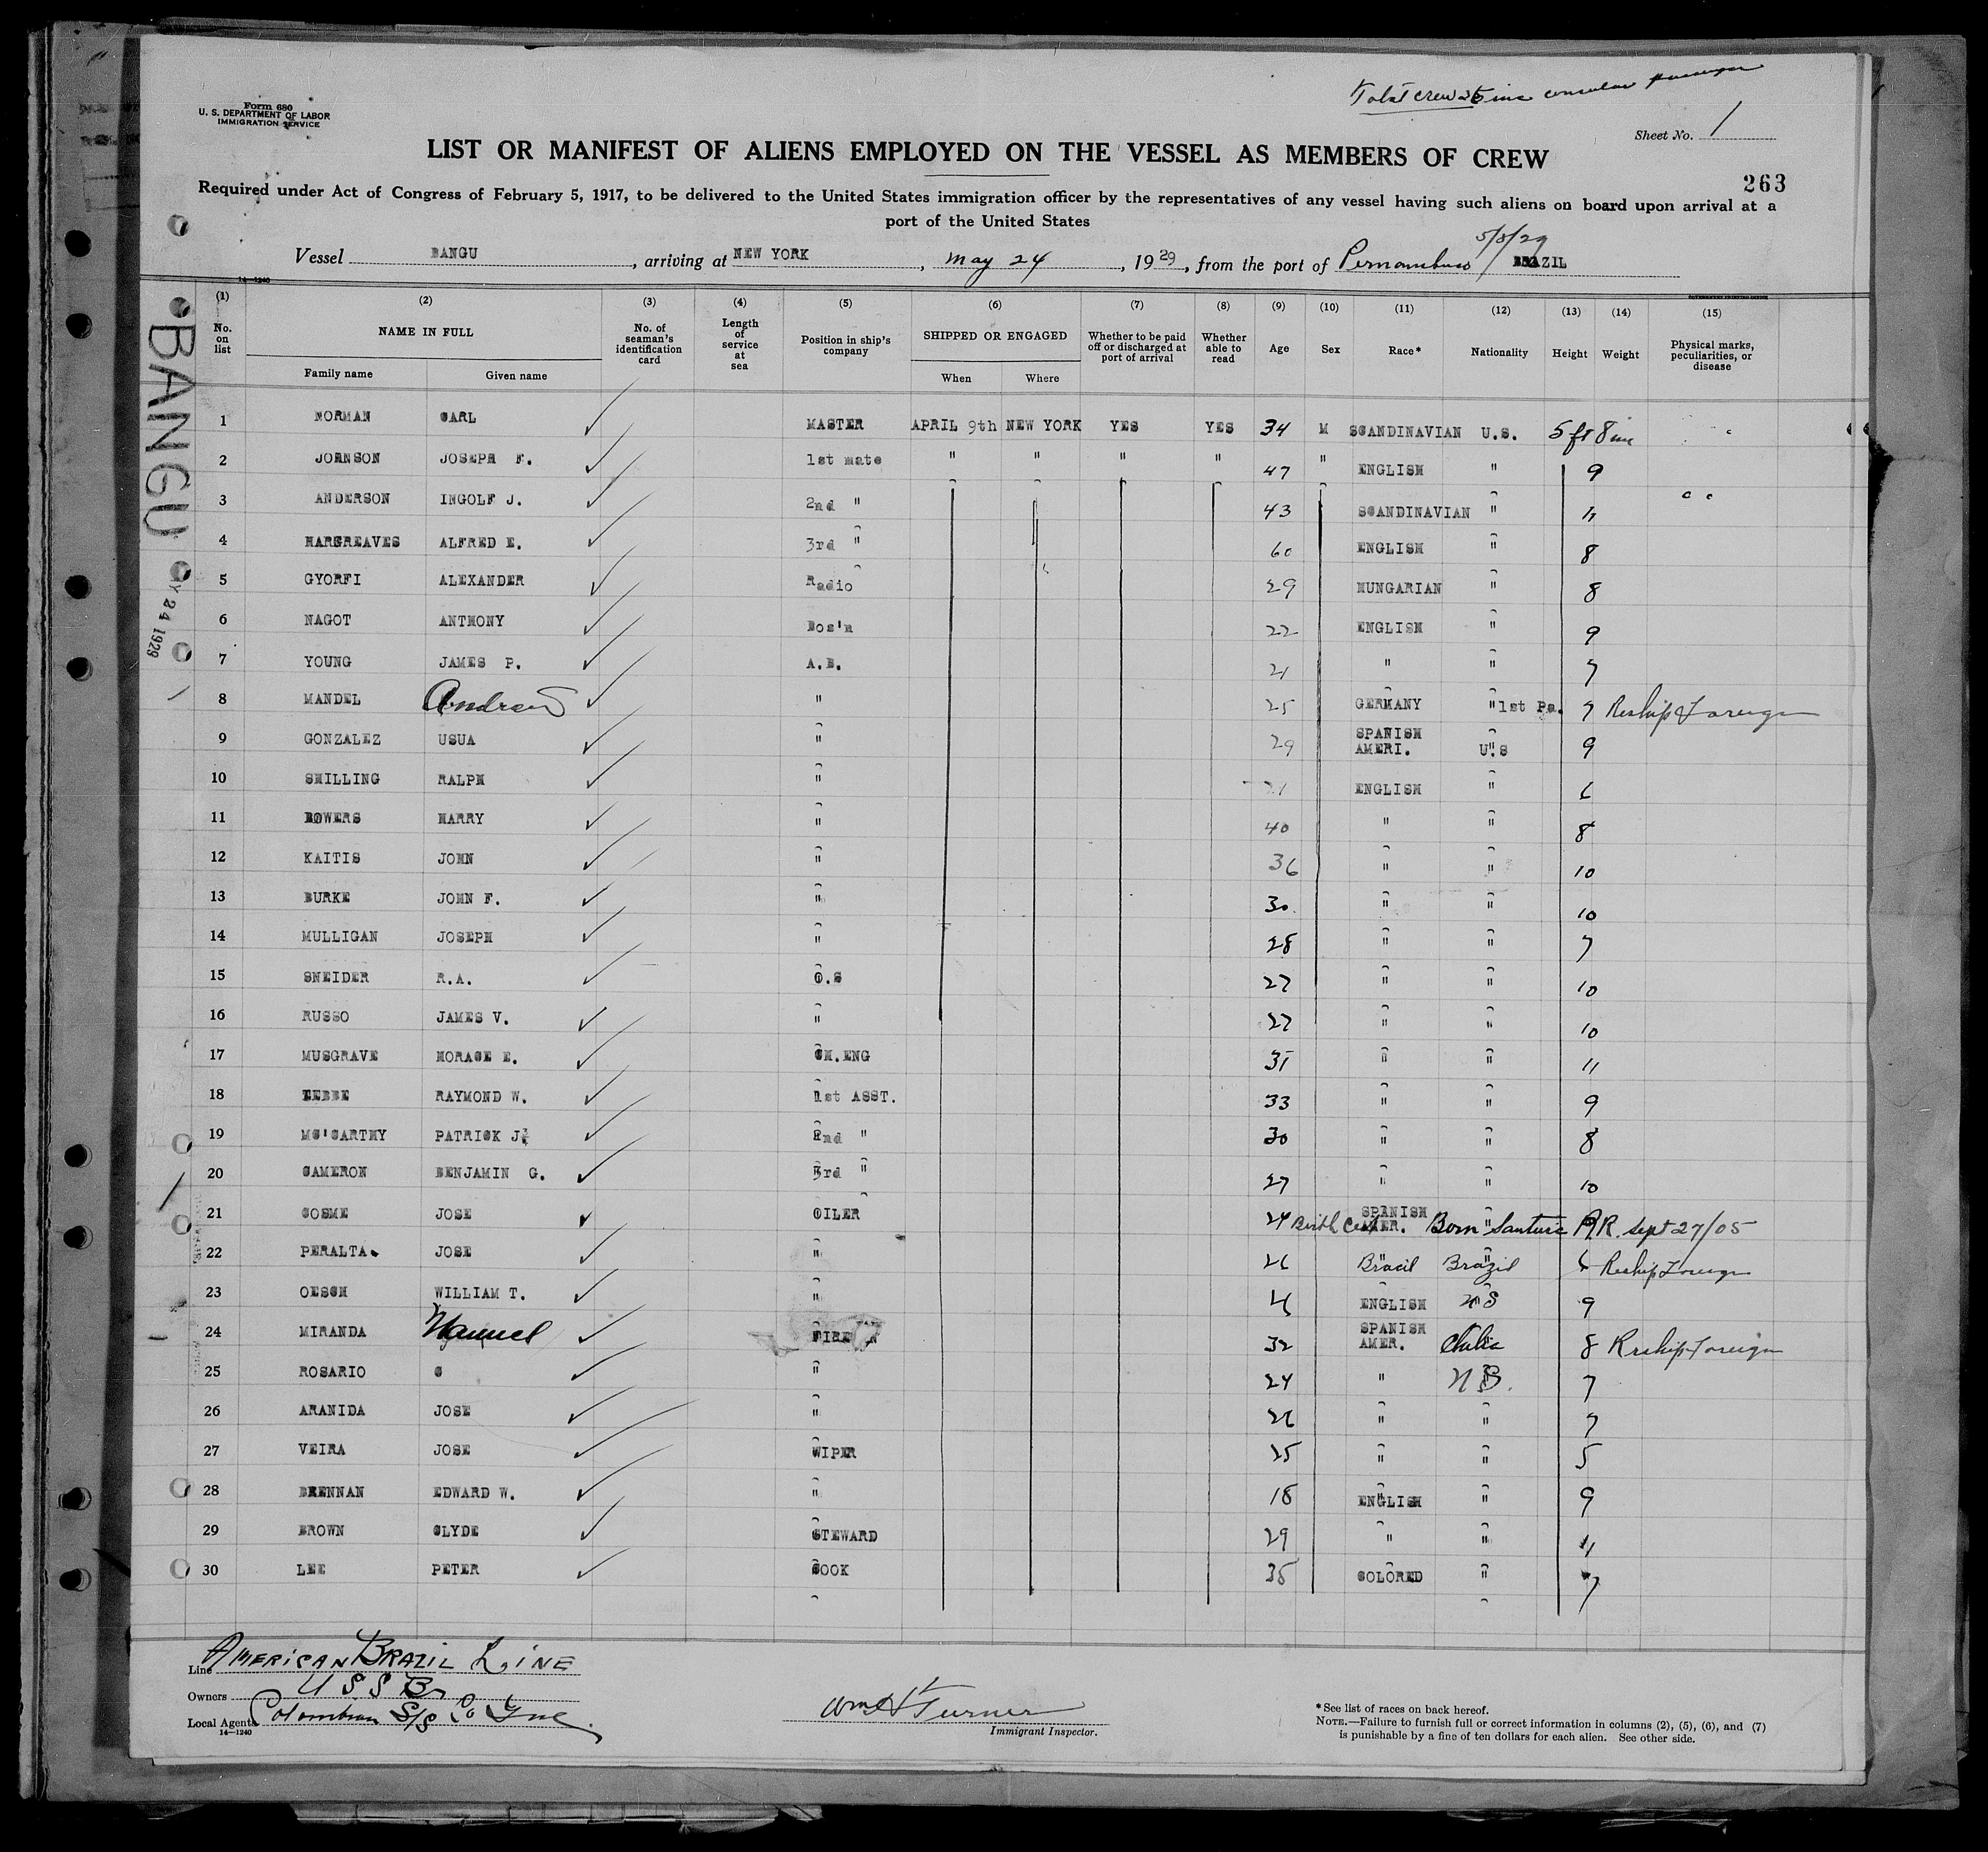 Total crew 35 inc consular passenger
Form 680
U. S. DEPARTMENT OF LABOR
IMMIGRATION SERVICE
Sheet No. 1
LIST OR MANIFEST OF ALIENS EMPLOYED ON THE VESSEL AS MEMBERS OF CREW
263
Required under Act of Congress of February 5, 1917, to be delivered to the United States immigration officer by the representatives of any vessel having such aliens on board upon arrival at a
port of the United States
5/8/29
Vessel BANGU, arriving at NEW YORK, May 24, 1929, from the port of Pernambuco BRAZIL
14—1240
(1) No. on list
(2) NAME IN FULL Family name Given name
(3) No. of seaman's identification card
(4) Length of service at sea
(5) Position in ship's company
(6) SHIPPED OR ENGAGED When Where
(7) Whether to be paid off or discharged at port of arrival
(8) Whether able to read
(9) Age
(10) Sex
(11) Race*
(12) Nationality
(13) Height
(14) Weight
(15) Physical marks, peculiarities, or disease
BANGU
Y 24 1929
1 NORMAN CARL MASTER APRIL 9th NEW YORK YES YES 34 M SCANDINAVIAN U.S. 5 ft 8 in
2 JOHNSON JOSEPH F. 1st mate " " " " 47 " ENGLISH " 9
3 ANDERSON INGOLF J. 2nd " 43 SCANDINAVIAN " 11
4 HARGREAVES ALFRED E. 3rd " 60 ENGLISH " 8
5 GYORFI ALEXANDER Radio 29 HUNGARIAN " 8
6 NAGOT ANTHONY Bos'n 22 ENGLISH " 9
7 YOUNG JAMES P. A.B. 21 " " 7
8 MANDEL Andrew " 25 GERMANY " 1st Pa. 7 Reship Foreign
9 GONZALEZ USUA " 29 SPANISH AMERI. U.S 9
10 SHILLING RALPH " 21 ENGLISH " 6
11 BOWERS HARRY " 40 " " 8
12 KAITIS JOHN " 36 " " 10
13 BURKE JOHN F. " 30 " " 10
14 MULLIGAN JOSEPH " 28 " " 7
15 SNEIDER R.A. O.S 27 " " 10
16 RUSSO JAMES V. " 27 " " 10
17 MUSGRAVE HORACE E. CH.ENG 31 " " 11
18 TEBBE RAYMOND W. 1st ASST. 33 " " 9
19 MC'CARTHY PATRICK J. 2nd " 30 " " 8
20 CAMERON BENJAMIN G. 3rd " 27 " " 10
21 COSME JOSE OILER 24 Birth Cert SPANISH AMER. Born Santurce P.R. Sept 27/05
22 PERALTA JOSE " 26 Bracil Brazil 6 Reship Foreign
23 OESCH WILLIAM T. " ENGLISH U S 9
24 MIRANDA Manuel FIREMAN 32 SPANISH AMER. Chile 8 Reship Foreign
25 ROSARIO C " 24 " U S. 7
26 ARANIDA JOSE " 26 " " 7
27 VEIRA JOSE WIPER 25 " " 5
28 BRENNAN EDWARD W. " 18 ENGLISH " 9
29 BROWN CLYDE STEWARD 29 " " 11
30 LEE PETER COOK 35 COLORED " 7
Line AMERICAN BRAZIL LINE
Owners U S S B
Local Agents Colombian S/S Co Inc.
14—1240
Wm H Turner
Immigrant Inspector.
* See list of races on back hereof.
NOTE.—Failure to furnish full or correct information in columns (2), (5), (6), and (7)
is punishable by a fine of ten dollars for each alien. See other side.